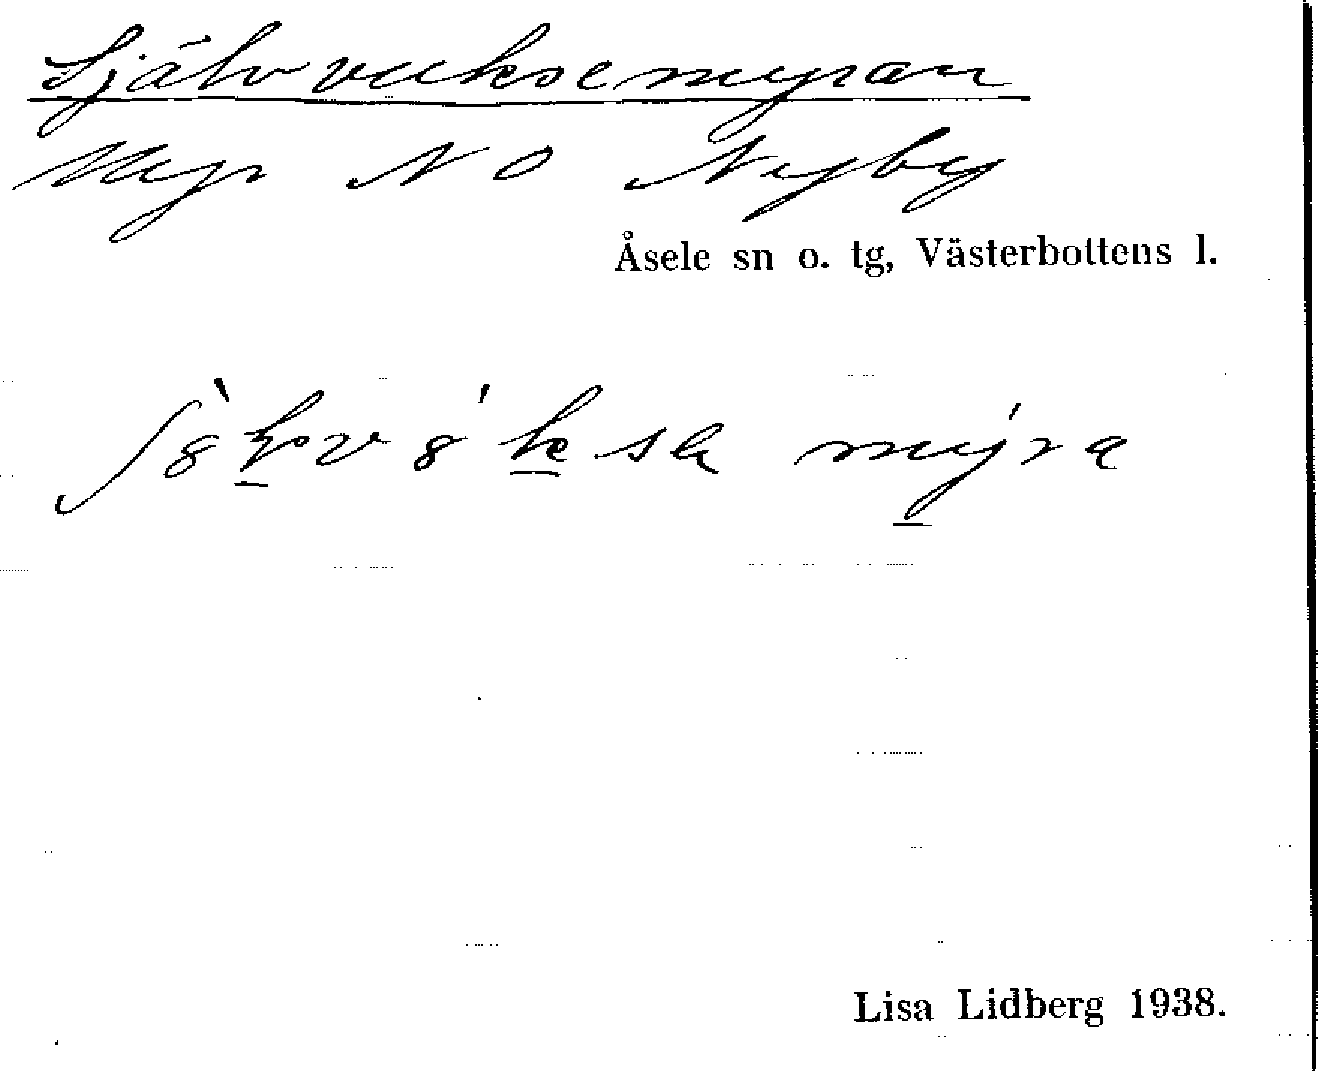 Självvuksemyran
Myr N O Nyby
Åsele sn o. tg, Västerbottens l.
Lisa Lidberg 1938.